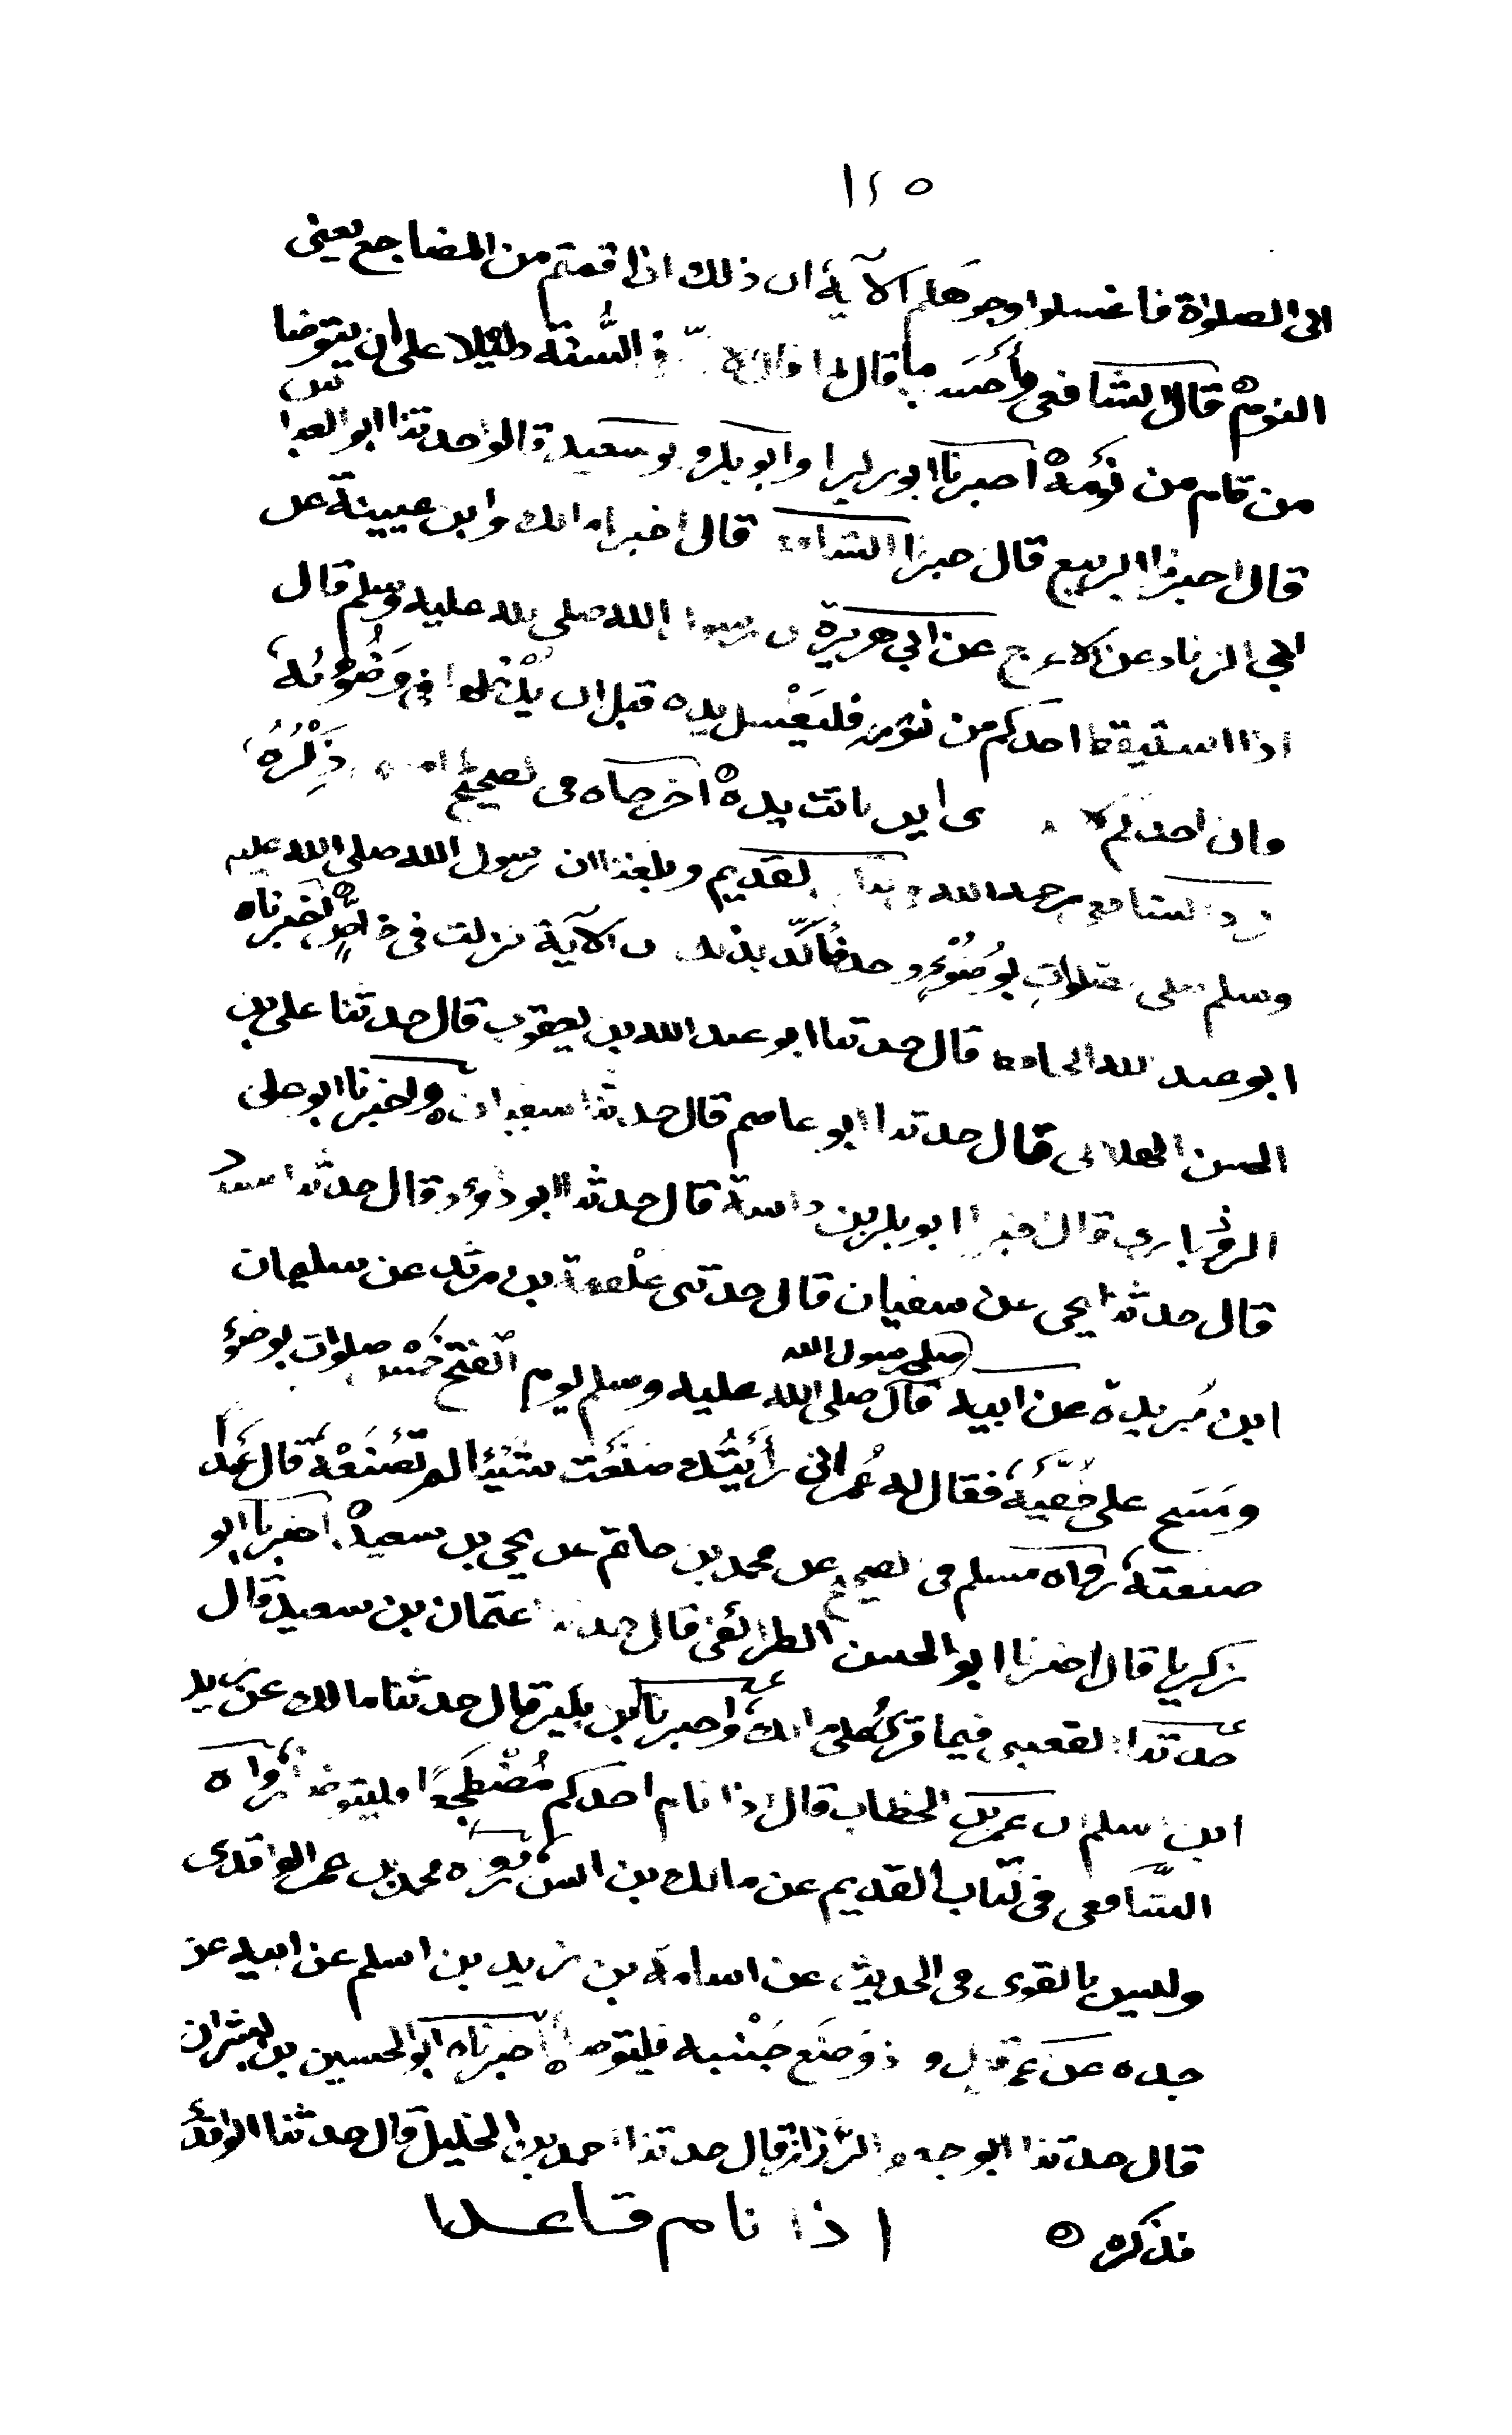 ١٢٥
الى الصلوٰة فاغسلوا وجوهكم الآية ان ذلك اذا قمتم من المضاجع يعني
النوم قال الشافعي وأحسب ما قال كما قال لان في السُّنة دليلا على ان يتوضا
من قام من نومه اخبرنا ابو زكريا وابو بكر وابو سعيد قالوا حدثنا ابو العباس
قال اخبرنا الربيع قال اخبرنا الشافعي قال اخبرنا مالك وابن عيينة عن
ابي الزناد عن الاعرج عن ابي هريرة ان رسول الله صلى الله عليه وسلم قال
اذا استيقظ احدكم من نومه فليَغْسل يده قبل ان يُدْخلها في وَضُوْئه
فان احدكم لا يدرى اين باتت يده اخرجاه في الصحيح ذِكْرُهُ
زاد الشافعي رحمه الله في كتاب القديم وبلغنا ان رسول الله صلى الله عليه
وسلم صلى صلوات بوُضُوْءٍ واحد فأكّد بذلك ان الآية نزلت في خاصٍّ اخبرناه
ابو عبد الله الحافظ قال حدثنا ابو عبد الله بن يعقوب قال حدثنا علي بن
الحسن الهلالي قال حدثنا ابو عاصم قال حدثنا سفيان واخبرنا ابو علي
الروذباري قال اخبرنا ابو بكر بن داسة قال حدثنا ابو داود قال حدثنا مسدد
قال حدثنا يحيى عن سفيان قال حدثني علْقمة بن مرثد عن سليمان
ابن بُريدة عن ابيه قال صلى رسول الله صلى الله عليه وسلم يوم الفتح خَمْسَ صلوات بوضوء
ومَسَح على خُفَّيْهِ فقال له عُمر اني رأَيْتُك صَنَعْت شيئا لم تَصْنَعْه قال عَمْداً
صنعته رواه مسلم في الصحيح عن محمد بن حاتم عن يحيى بن سعيد اخبرنا ابو
زكريا قال اخبرنا ابو الحسن الطرائفي قال حدثنا عثمان بن سعيد قال
حدثنا القعنبي فيما قرئ على مالك واخبرنا ابن بكير قال حدثنا مالك عن زيد
ابن اسلم ان عمر بن الخطاب قال اذا نام احدكم مُضْطجعًا فليتوضا رواه
الشَّافعي في كتاب القديم عن مالك بن انس وغيره محمد بن عمر الواقدي
وليس بالقوي في الحديث عن اسامة بن زيد بن اسلم عن ابيه عن
جده عن عمر قال اذ وَضَع جَنْبه فليتوضا اخبرناه ابو الحسين بن بشران
قال حدثنا ابو جعفر الرَّزاز قال حدثنا احمد بن الخليل قال حدثنا الواقدي
فذكره اذا نام قاعدا